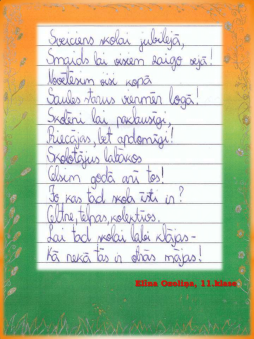 Sveiciens skolai jubilejā,
Smaids lai visiem zaigo sejā!
Novēlēsim visi kopā
Saules starus vienmēr logā!
Skolēni lai paklausīgi,
Priecājas, bet apdomīgi!
Skolotājus labākos
Celsim godā arī tos!
Jo kas tad skola īsti ir?
Celtne, telpas, kolektīvs.
Lai tad skolai labi klājas-
Kā nekā tās ir otrās mājas!
Elīna Ozoliņa, 11.klase